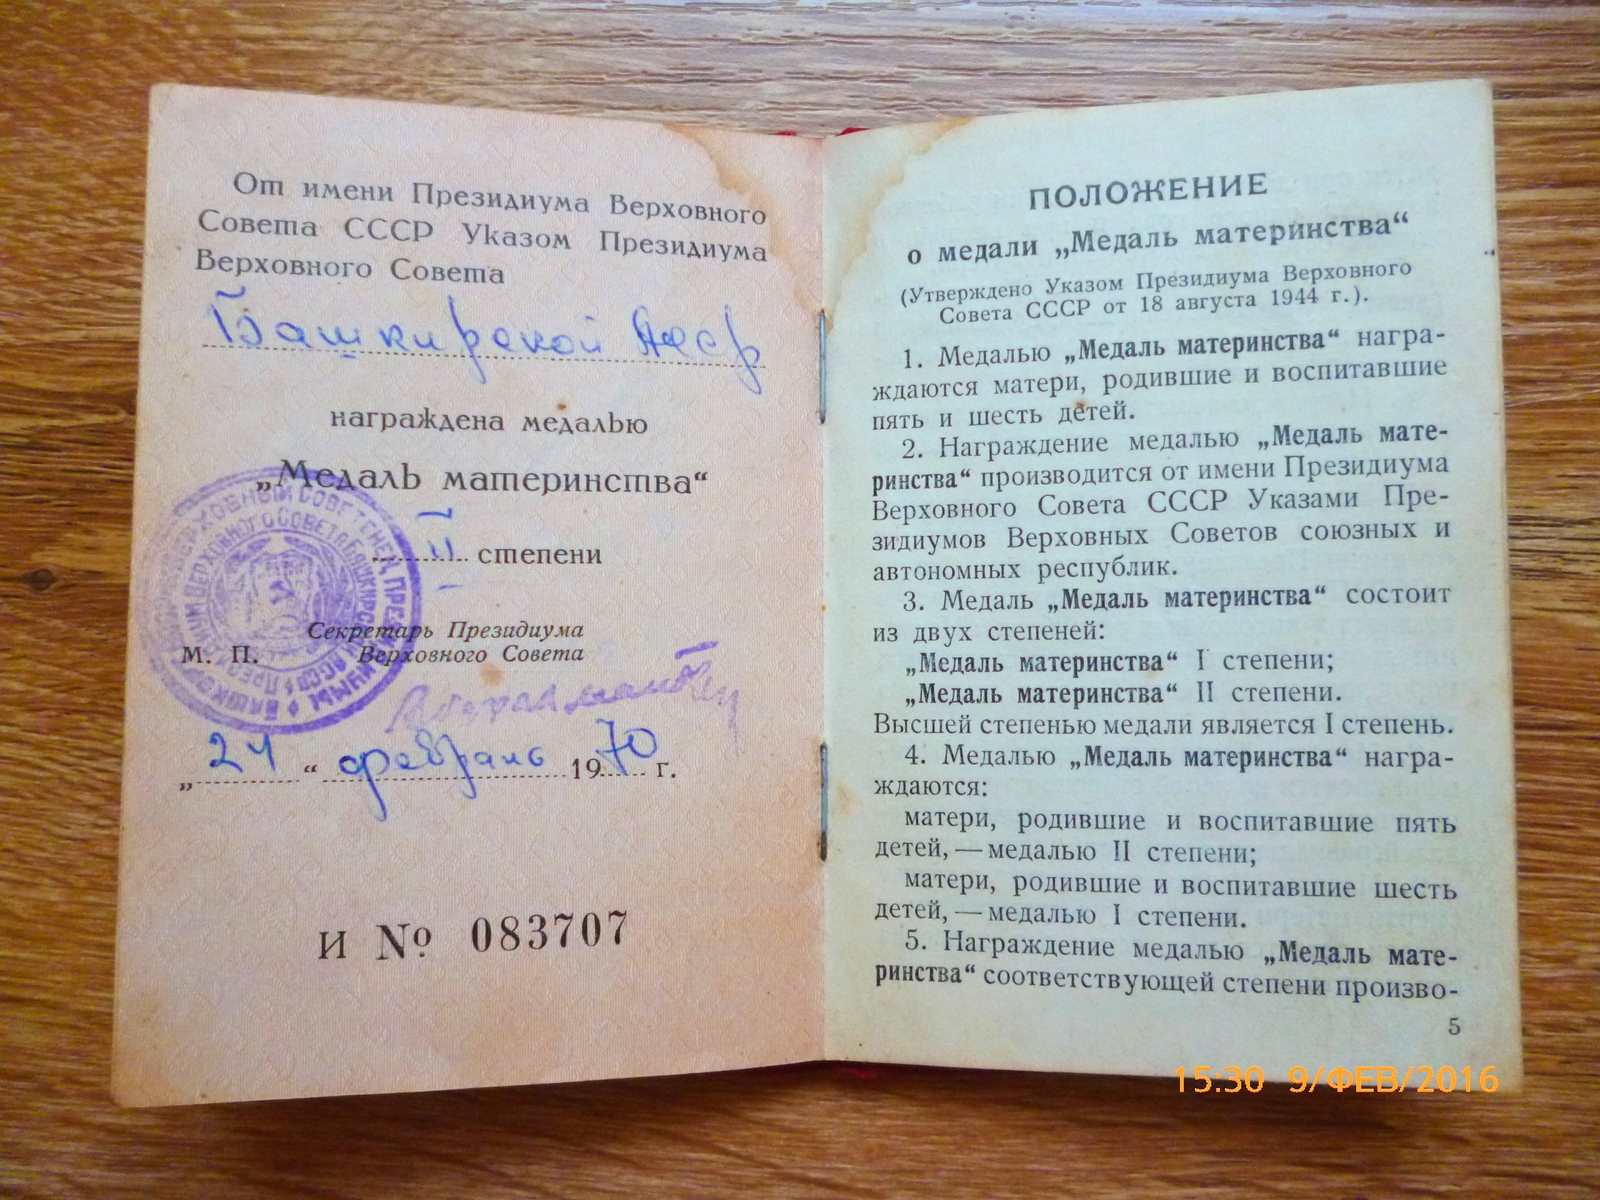 От имени Президиума Верховного
Совета СССР Указом Президиума
Верховного Совета
Башкирской АССР
награждена медалью
„Медаль материнства“
II степени
Секретарь Президиума
М. П. Верховного Совета
„24“ февраль 1970 г.
И № 083707
ПОЛОЖЕНИЕ
о медали „Медаль материнства“
(Утверждено Указом Президиума Верховного
Совета СССР от 18 августа 1944 г.).
1. Медалью „Медаль материнства“ награ-
ждаются матери, родившие и воспитавшие
пять и шесть детей.
2. Награждение медалью „Медаль мате-
ринства“ производится от имени Президиума
Верховного Совета СССР Указами Пре-
зидиумов Верховных Советов союзных и
автономных республик.
3. Медаль „Медаль материнства“ состоит
из двух степеней:
„Медаль материнства“ I степени;
„Медаль материнства“ II степени.
Высшей степенью медали является I степень.
4. Медалью „Медаль материнства“ награ-
ждаются:
матери, родившие и воспитавшие пять
детей, — медалью II степени;
матери, родившие и воспитавшие шесть
детей, — медалью I степени.
5. Награждение медалью „Медаль мате-
ринства“ соответствующей степени произво-
5
15:30 9/ФЕВ/2016